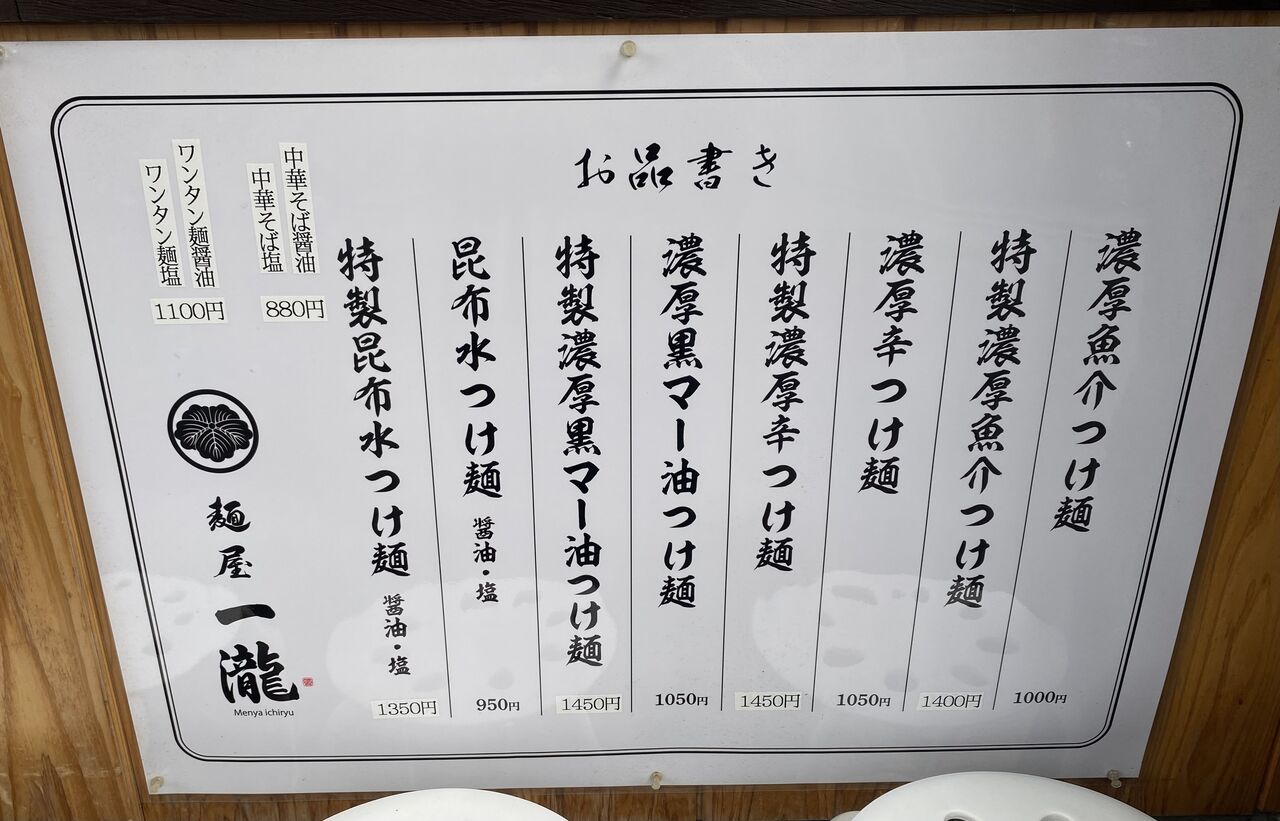 お品書き
濃厚魚介つけ麺
1000円
特製濃厚魚介つけ麺
1400円
濃厚辛つけ麺
1050円
特製濃厚辛つけ麺
1450円
濃厚黒マー油つけ麺
1050円
特製濃厚黒マー油つけ麺
1450円
昆布水つけ麺 醤油・塩
950円
特製昆布水つけ麺 醤油・塩
1350円
中華そば醤油
中華そば塩
880円
ワンタン麺醤油
ワンタン麺塩
1100円
麺屋一瀧
Menya ichiryu